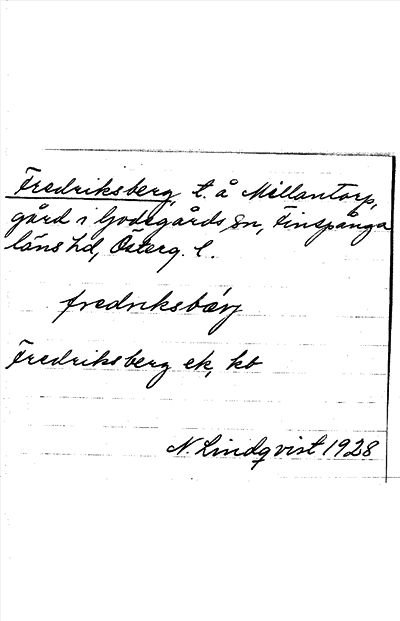 Fredriksberg, t. å Mellantorp,
gård i Godegårds sn, Finspånga
läns hd, Österg. l.
fredriksbærj
Fredriksberg ek, kb
N. Lindqvist 1928